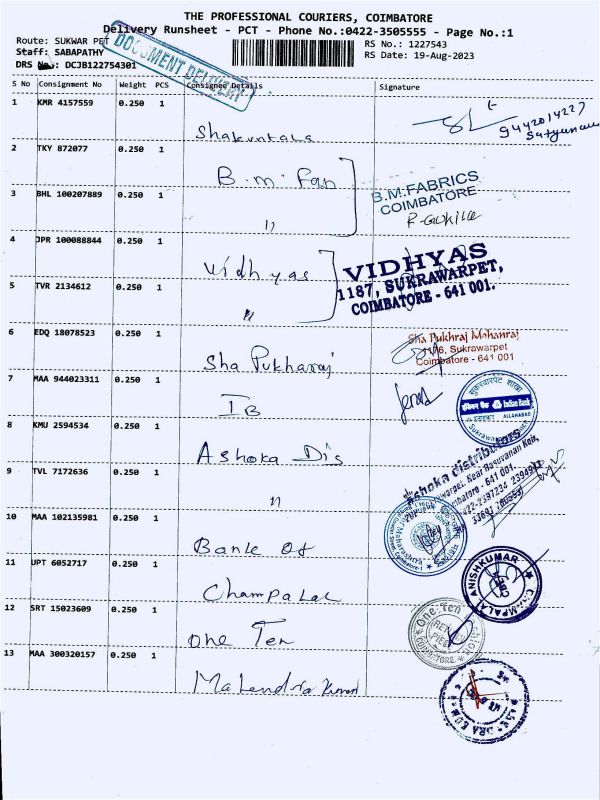 THE PROFESSIONAL COURIERS, COIMBATORE
Delivery Runsheet - PCT - Phone No.:0422-3505555 - Page No.:1
Route: SUKWAR PET
RS No.: 1227543
Staff: SABAPATHY
RS Date: 19-Aug-2023
DRS No.: DCJB122754301
DOCUMENT DELIVERY
S No Consignment No Weight PCS Consignee Details Signature
1 KMR 4157559 0.250 1
Shakuntala
9442014227
2 TKY 872077 0.250 1
B.m. Fab
B.M.FABRICS
COIMBATORE
3 BHL 100207889 0.250 1
"
4 JPR 100088844 0.250 1
Vidhyas
VIDHYAS
1187, SUKRAWARPET,
COIMBATORE - 641 001.
5 TVR 2134612 0.250 1
"
6 EDQ 18078523 0.250 1
Sha Pukharaj
Sha Pukhraj Mohanraj
Sukrawarpet
Coimbatore - 641 001
7 MAA 944023311 0.250 1
IB
इंडियन बैंक Indian Bank
ALLAHABAD
8 KMU 2594534 0.250 1
Ashoka Dis
Ashoka distributors
9 TVL 7172636 0.250 1
"
10 MAA 102135981 0.250 1
Bank of
11 UPT 6052717 0.250 1
Champalal
CHAMPALAL ANISHKUMAR
12 SRT 15023609 0.250 1
One Ten
One Ten
COIMBATORE
13 MAA 300320157 0.250 1
Mahendra Kumar